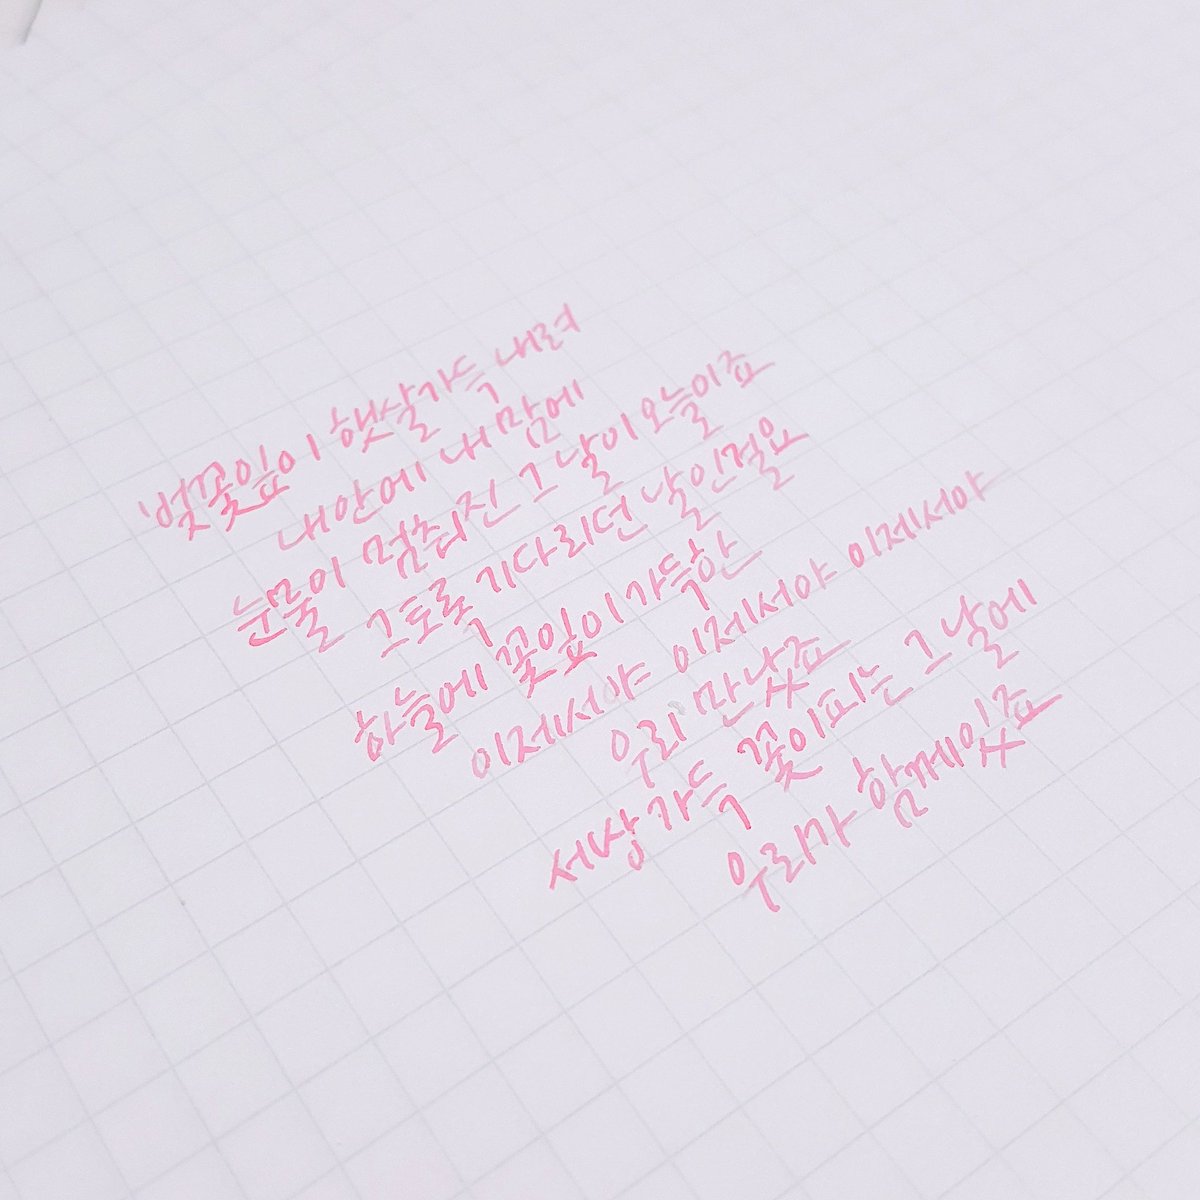 벚꽃잎이 햇살가득 내려
내안에 내 맘에
눈물이 멈춰진 그 날이 오늘이죠
그토록 기다리던 날인걸요
하늘에 꽃잎이 가득한
이제서야 이제서야 이제서야
우리 만났죠
세상가득 꽃이피는 그 날에
우리가 함께있죠